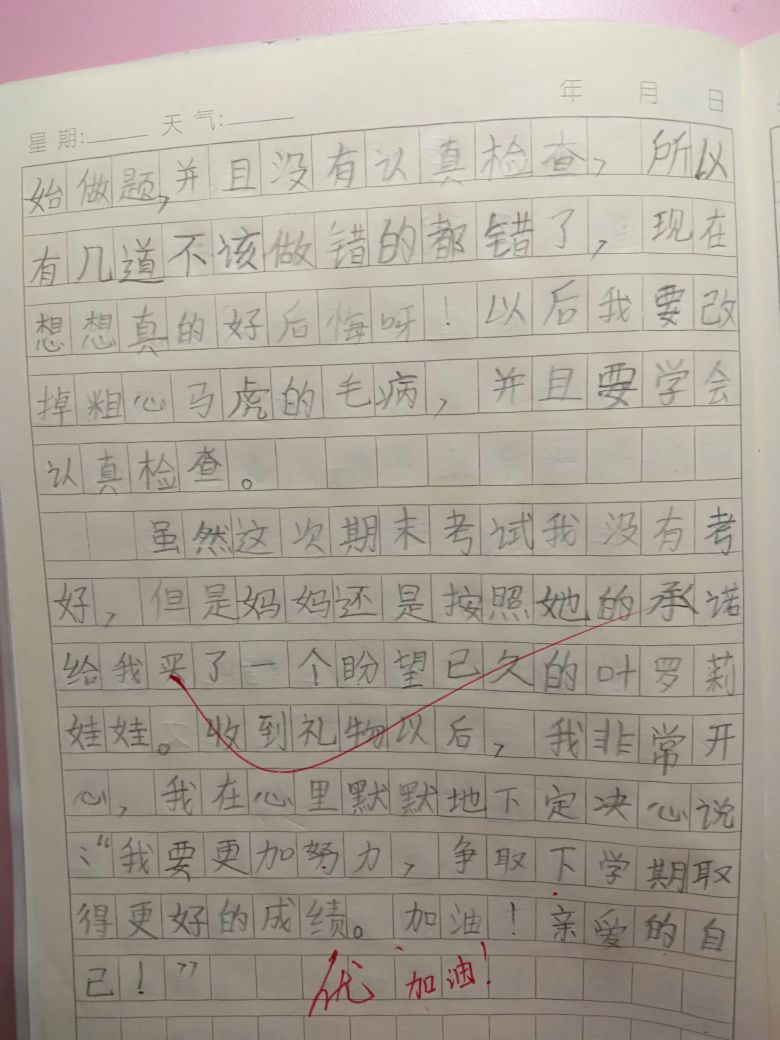 年 月 日
星期: 天气:
始做题,并且没有认真检查,所以
有几道不该做错的都错了,现在
想想真的好后悔呀!以后我要改
掉粗心马虎的毛病,并且要学会
认真检查。
虽然这次期末考试我没有考
好,但是妈妈还是按照她的承诺
给我买了一个盼望已久的叶罗莉
娃娃。收到礼物以后,我非常开
心,我在心里默默地下定决心说
:“我要更加努力,争取下学期取
得更好的成绩。加油!亲爱的自
己!”
优 加油!